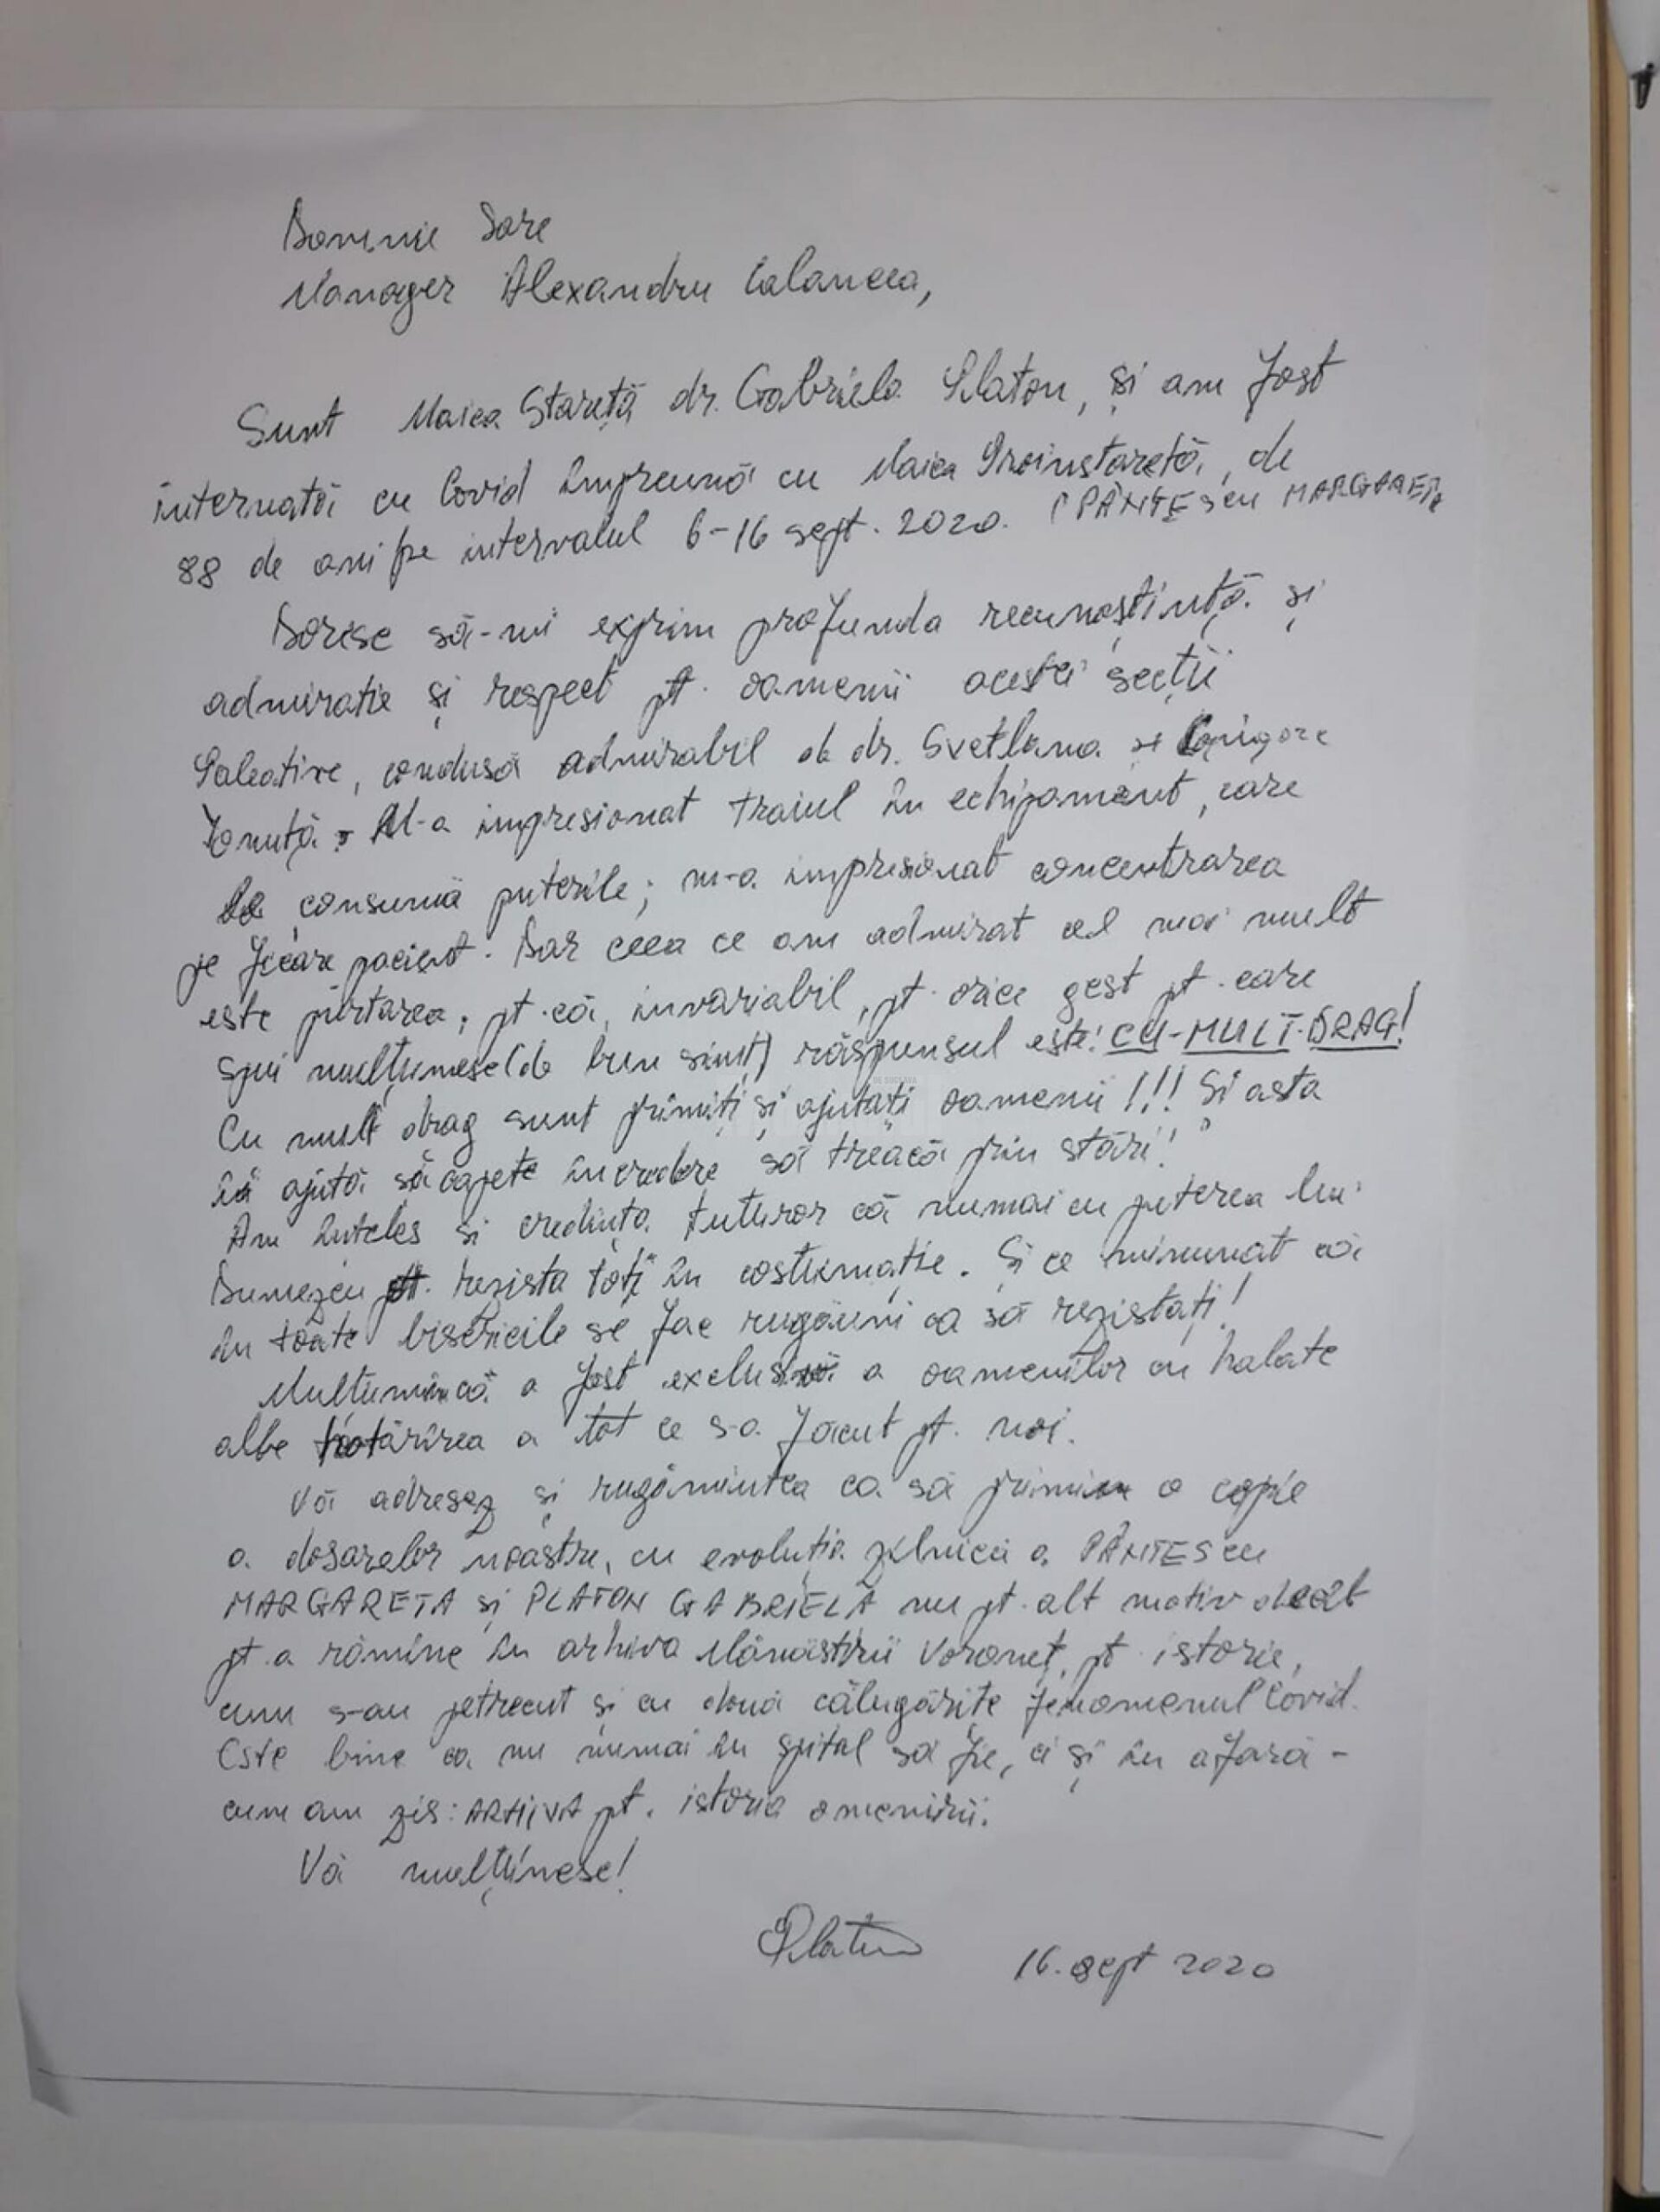 Domnule Dare
Manager Alexandru Calancea,
Sunt Maica Stareță dr. Gabriela Platon, și am fost
internată cu Covid împreună cu Maica Proinstareță, de
88 de ani pe intervalul 6-16 sept. 2020. (PÂNTEScu MARGARETA
Doresc să-mi exprim profunda recunoștință și
admiratie și respect pt. oamenii acestei secții
Paleative, condusă admirabil de dr. Svetlana și Grigore
Ionuță. M-a impresionat traiul în echipament, care
le consumă puterile; m-a impresionat concentrarea
pe fiecare pacient. Dar ceea ce am admirat cel mai mult
este purtarea; pt. că, invariabil, pt. orice gest pt. care
spui mulțumesc (de bun simț) răspunsul este: CU-MULT-DRAG!
Cu mult drag sunt primiți și ajutați oamenii!!! Și asta
îi ajută să capete încredere să treacă prin stări!
Am înteles si credința tuturor că numai cu puterea lui
Dumezeu pt. rezista toți în costumație. Și ce minunat că
în toate bisericile se fac rugăciuni ca să rezistați!
Multumim că a fost exclusivă a oamenilor cu halate
albe hotărîrea a tot ce s-a făcut pt. noi.
Vă adresez și rugămintea ca să primim o copie
a dosarelor noastre, cu evoluția zilnică a PÂNTEScu
MARGARETA și PLATON GABRIELA nu pt. alt motiv decât
pt. a rămîne în arhiva Mănăstirii Voroneț, pt. istorie,
cum s-au petrecut și cu două călugărite fenomenul Covid.
Este bine ca nu numai în spital să fie, ci și în afară -
cum am zis: ARHIVA pt. istoria omenirii.
Vă mulțumesc!
Platon 16. sept 2020